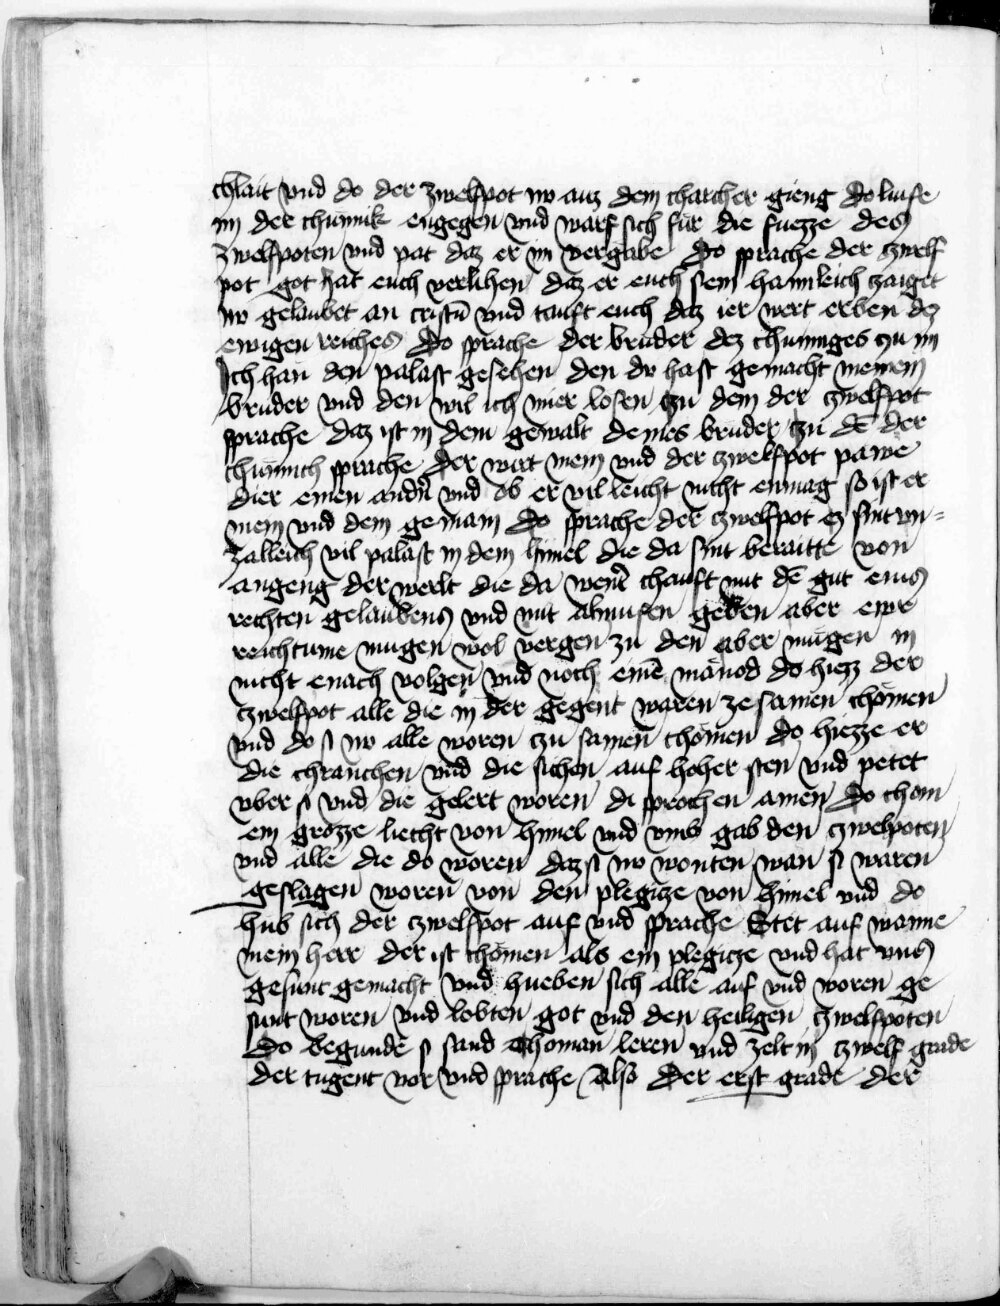 chlait vnd do der zwelfpot nv auz dem charcher gieng do luife
im der chunnik engegen vnd warf sich für die fuezze des
zwelfpoten vnd pat daz er im vergabe Do sprache der zwelf
pot got hat euch verlihen daz er euch sein haimleich zaiget
nv gelaubet an cristū vnd tauft euch daz ier wert erben dez
ewigen reiches Do sprache der bruder dez chunniges zu im
Ich han den palast gesehen den du hast gemacht meinem
bruder vnd den wil ich mier losen zu dem der zwelfpot
sprache daz ist in dem gewalt deines bruder zu dē der
chunnich sprache der wirt mein vnd der zwelfpot pawe
dier einen andr̄n vnd ob er vil leicht nicht enmag so ist er
mein vnd dein gemain Do sprache der zwelfpot ez sint vn=
zalleich vil palast in dem himel die da sint beraitte von
angeng der werlt die da wenͬt chauft mit dē gut eins
rechten gelaubens vnd mit almusen geben aber ewr
reichtume mugen wol vergen zu den aber mugen in
nicht enach volgen vnd noch einē manod do hiez der
zwelfpot alle die in der gegent waren ze samen chömen
vnd do si nv alle woren zu samen chömen Do hiezze er
die chranchen vnd die sichen auf hoher sten vnd petet
vber si vnd die gelert woren di sprochen amen Do chom
ein grozze liecht von himel vnd vmb gab den zwelpoten
vnd alle die do woren daz si nv wonten wan si waren
geslagen woren von den plegicze von himel vnd do
hub sich der zwelfpot auf vnd sprache Stet auf wanne
mein herr der ist chömen als ein plegicze vnd hat vns
gesunt gemacht vnd hueben sich alle auf vnd woren ge
sunt woren vnd lobten got vnd den heiligen zwelfpoten
Do begunde si sand Thoman leren vnd zelt in zwelf grade
der tugent vor vnd sprache also Der erst grade der